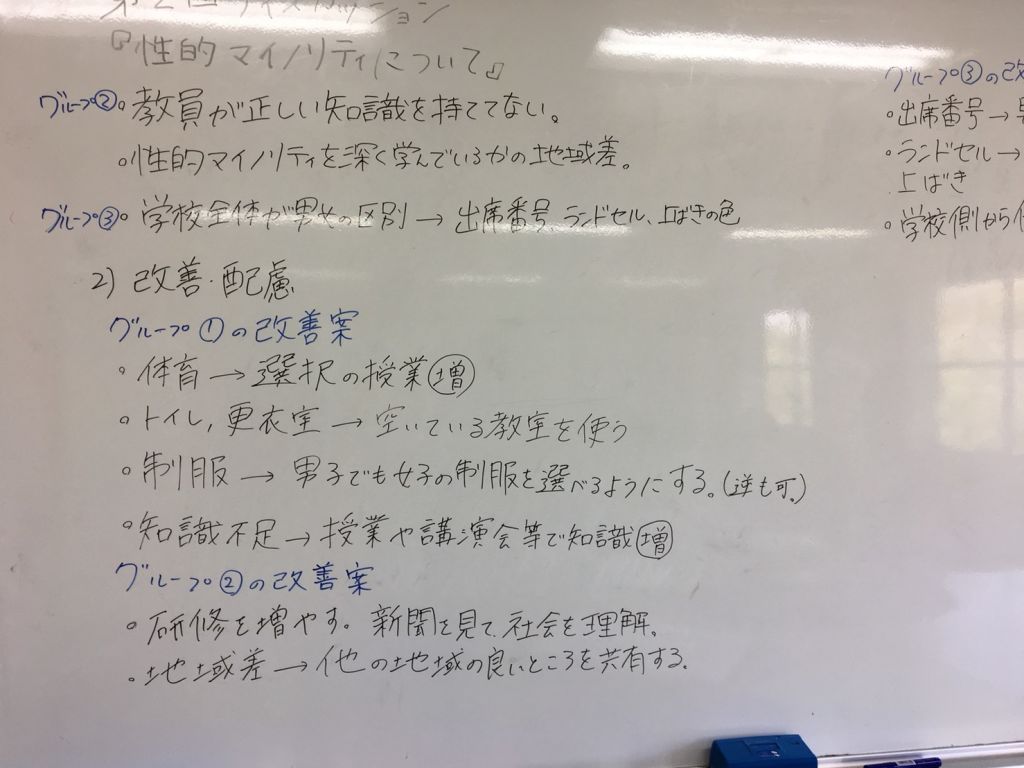 第2回ディスカッション
『性的マイノリティについて』
グループ②。教員が正しい知識を持ててない。
。性的マイノリティを深く学んでいるかの地域差。
グループ③。学校全体が男女の区別 → 出席番号、ランドセル、上ばきの色
2) 改善・配慮
グループ①の改善案
。体育 → 選択の授業増
。トイレ, 更衣室 → 空いている教室を使う
。制服 → 男子でも女子の制服を選べるようにする。(逆も可。)
。知識不足 → 授業や講演会等で知識増
グループ②の改善案
。研修を増やす。新聞を見て、社会を理解。
。地域差 → 他の地域の良いところを共有する。
グループ③の改
。出席番号 →
。ランドセル →
上ばき
。学校側から